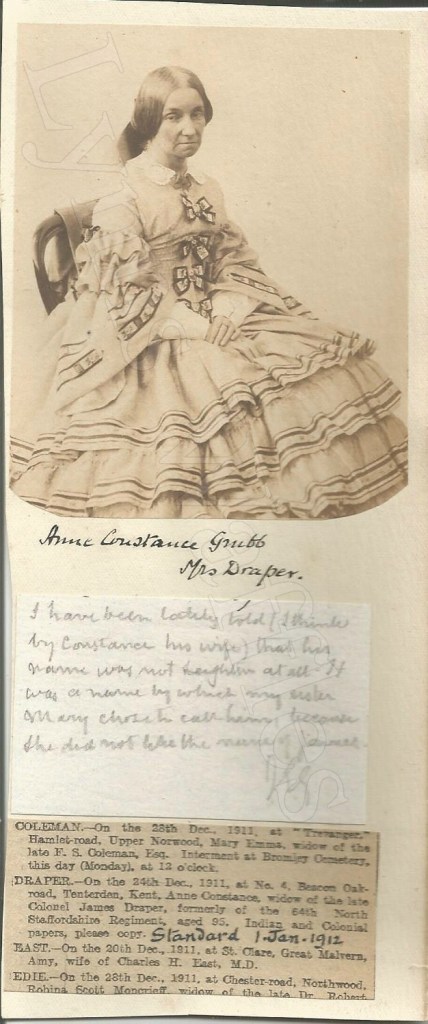 Anne Constance Grubb
Mrs Draper.
I have been lately told (I think
by Constance his wife) that his
name was not Leighton at all. It
was a name by which my sister
Mary chose to call him, because
she did not like the name of James.
COLEMAN.—On the 28th Dec., 1911, at "Trevanger,"
Hamlet-road, Upper Norwood, Mary Emma, widow of the
late F. S. Coleman, Esq. Interment at Bromley Cemetery,
this day (Monday), at 12 o'clock.
DRAPER.—On the 24th Dec., 1911, at No. 4, Beacon Oak-
road, Tenterden, Kent, Anne Constance, widow of the late
Colonel James Draper, formerly of the 64th North
Staffordshire Regiment, aged 95. Indian and Colonial
papers, please copy. Standard 1. Jan. 1912
EAST.—On the 26th Dec., 1911, at St. Clare, Great Malvern,
Amy, wife of Charles H. East, M.D.
EDIE.—On the 28th Dec., 1911, at Chester-road, Northwood,
Robina Scott Moncrieff, widow of the late Dr. Robert